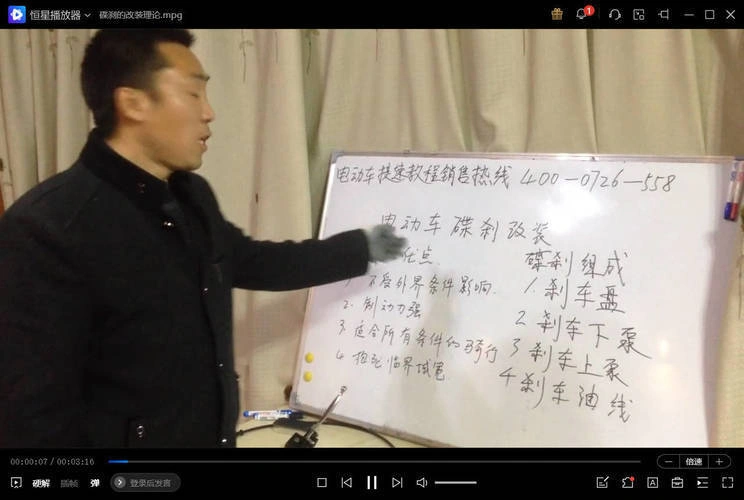 恒星播放器
碟刹的改装理论.mpg
1
电动车提速教程销售热线 400-0726-558
电动车碟刹改装
优点
1. 不受外界条件影响
2. 制动力强
3. 适合所有条件的骑行
4. 临界
碟刹组成
1. 刹车盘
2 刹车下泵
3 刹车上泵
4 刹车油线
00:00:07 / 00:03:16
倍速
硬解
插帧
弹
登录后发言